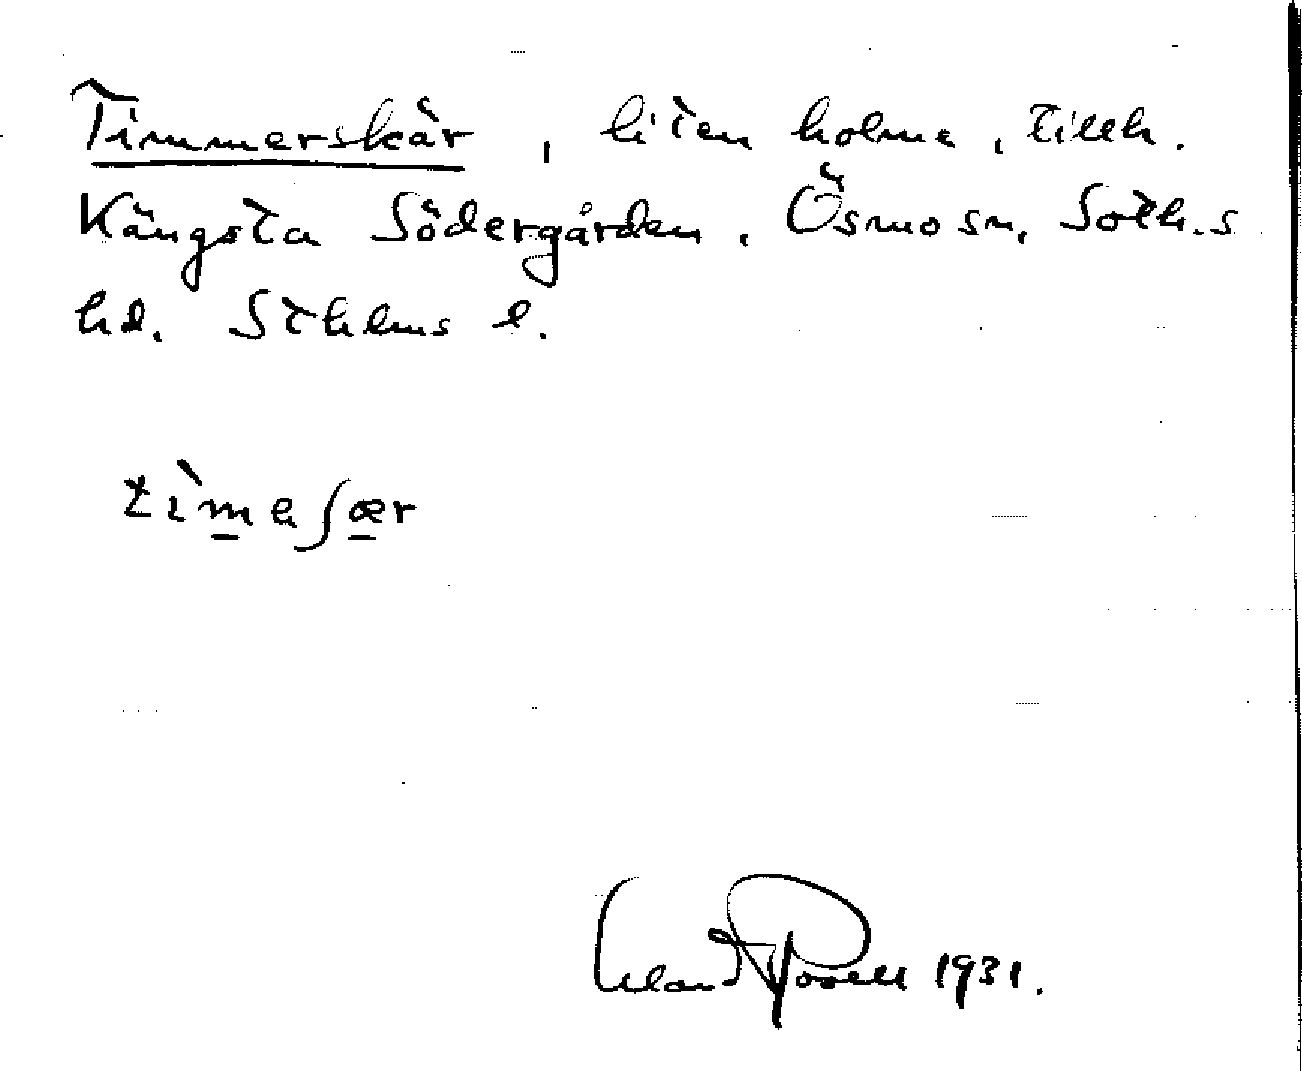 Timmerskär, liten holme, tillh.
Kängsta Södergården. Ösmo sn, Soth.s
hd. Sthlms l.
tìmeʃær
1931.